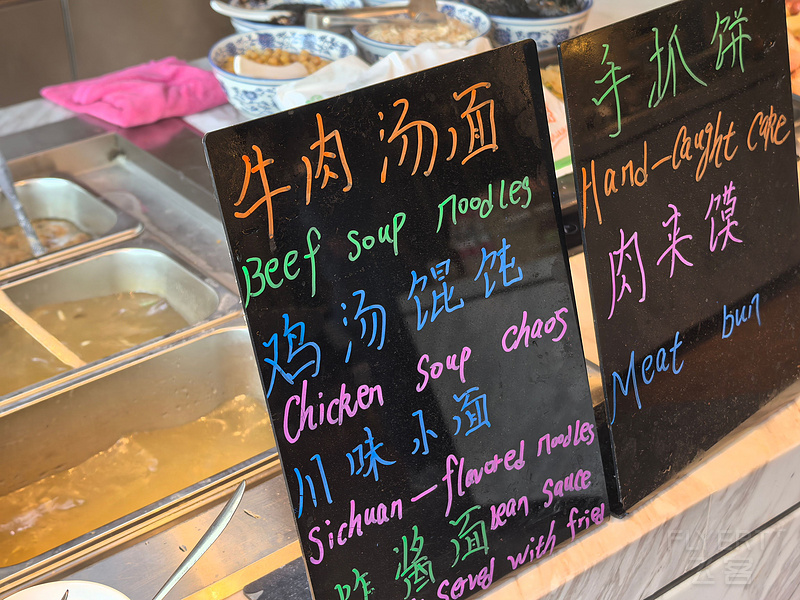 牛肉汤面
Beef Soup noodles
鸡汤馄饨
Chicken Soup chaos
川味小面
Sichuan-flavored noodles
炸酱面
served with fried
bean sauce
手抓饼
Hand-Caught Cake
肉夹馍
Meat bun